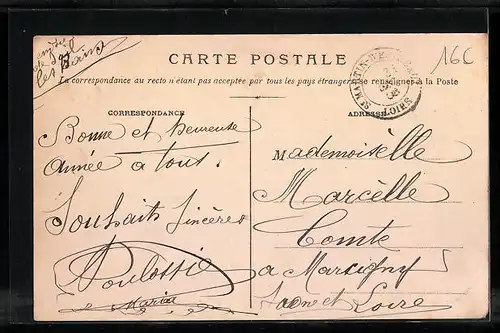 CARTE POSTALE
La correspondance au recto n'étant pas acceptée par tous les pays étrangers, se renseigner à la Poste
16C
ST MARTIN-D'E
LOIRE
CORRESPONDANCE
ADRESSE
Bonne et heureuse
année a tous.
Souhaits sincères
Poulossie
Marie
les Bains
Mademoisèlle
Marcèlle
Comte
a Marcigny
Saone et Loire